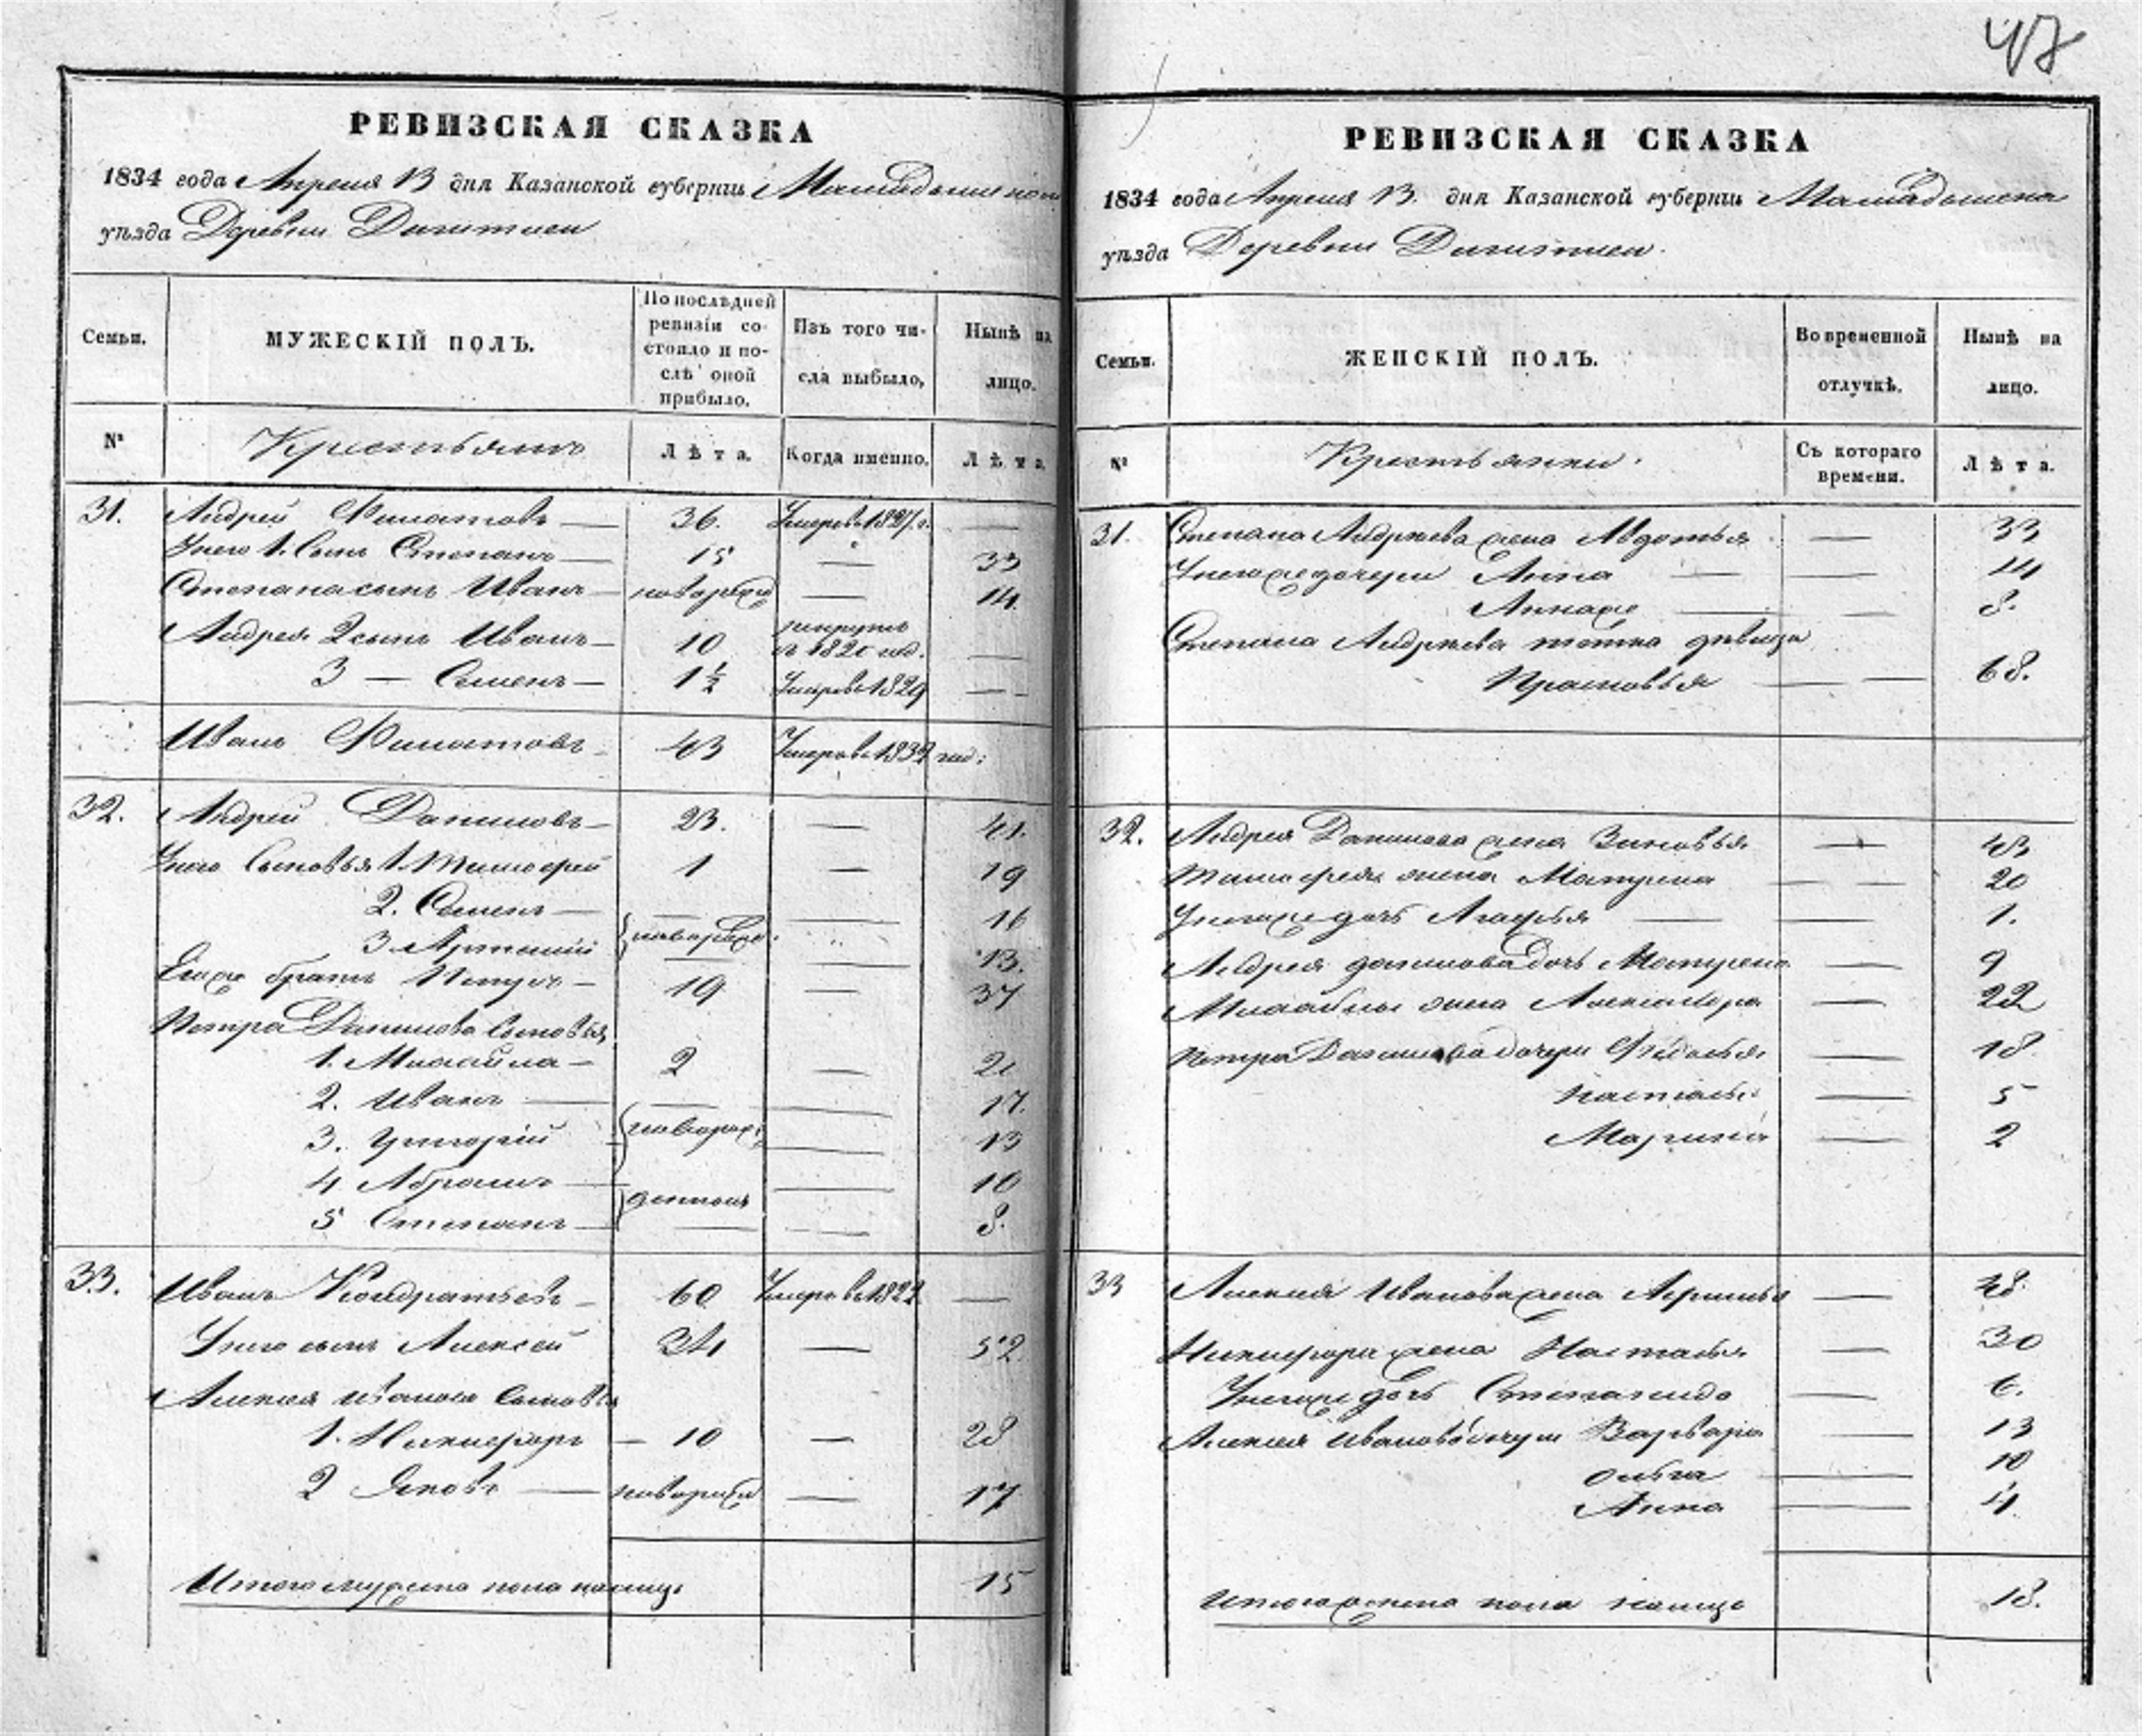 47
РЕВИЗСКАЯ СКАЗКА
1834 года Апреля 13 дня Казанской губерніи
уѣзда Деревни
Семьи.
МУЖЕСКІЙ ПОЛЪ.
По послѣдней ревизіи состояло и послѣ оной прибыло.
Изъ того числа выбыло,
Нынѣ на лицо.
№
Крестьянъ
Лѣта.
Когда именно.
Лѣта.
31. Андрей Филатовъ — 36. Умеръ въ 1827 г. —
У него 1. сынъ Степанъ — 15 — 33
Степана сынъ Иванъ — новорожд — 14
Андрея 2 сынъ Иванъ — 10 рекрутъ въ 1820 год. —
3 — Семенъ — 1½ Умеръ въ 1829 —
Иванъ Филатовъ 43 Умеръ въ год:
32. Андрей Даниловъ — 23. — 41.
У него сыновья 1. Тимофей 1 — 19
2. Семенъ — новорожд. — 16
3 Артемій — 13.
Егоже братъ Петръ — 19 — 37
Петра Данилова сыновья
1. Михайла — 2 — 21
2. Иванъ — — 17.
3. Григорій новорож: — 13
4. Абрамъ — — 10
5 Степанъ — — 8.
33. Иванъ Кондратьевъ — 60 Умеръ въ —
У него сынъ Алексей 34 — 52
Алексея Иванова сыновья
1. Никифоръ — 10 — 28
2 Яковъ — новорожд — 17
Итого мужеска пола налицо 15
РЕВИЗСКАЯ СКАЗКА
1834 года Апреля 13. дня Казанской губерніи
уѣзда Деревни
Семьи.
ЖЕНСКІЙ ПОЛЪ.
Во временной отлучкѣ.
Нынѣ на лицо.
№
Крестьянки.
Съ котораго времени.
Лѣта.
31. Степана Андрѣева жена Авдотья — 33
У негоже дочери Анна — 14
Аннаже — 8.
Степана Андрѣева тетка дѣвица
Прасковья — 68.
32. Андрея Данилова жена Зиновья —
Тимофея жена Матрена — 20
У негоже дочь Агафья — 1.
Андрея Данилова дочь Матрена — 9
Михайлы жена Александра — 22
Петра Данилова дочери Федосья — 18.
Настасья — 5
Марина — 2
33 Алексея Иванова жена — 48.
Никифора жена Настасья — 30
У негоже дочь Степанида — 6.
Алексея Иванова дочери Варвара — 13
Ольга — 10
Анна — 4.
Итого женска пола налицо 18.